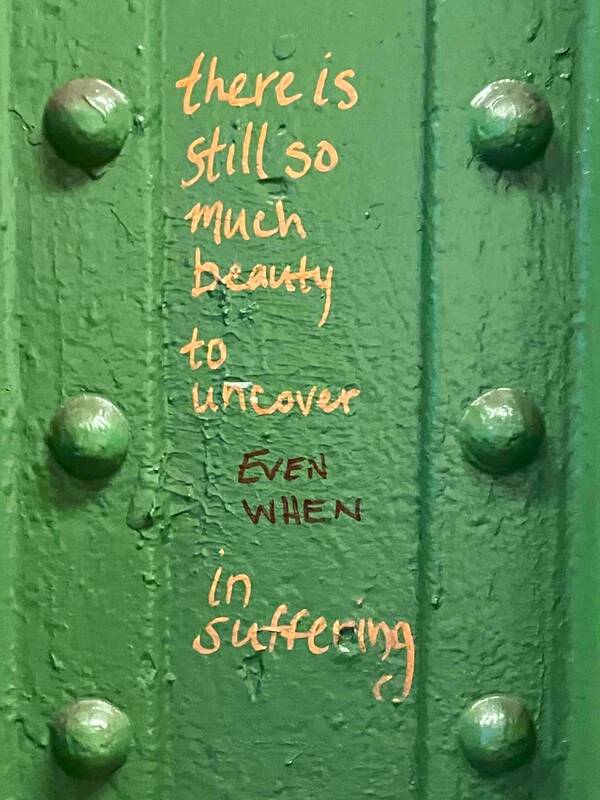 there is
still so
much
beauty
to
uncover
EVEN
WHEN
in
suffering